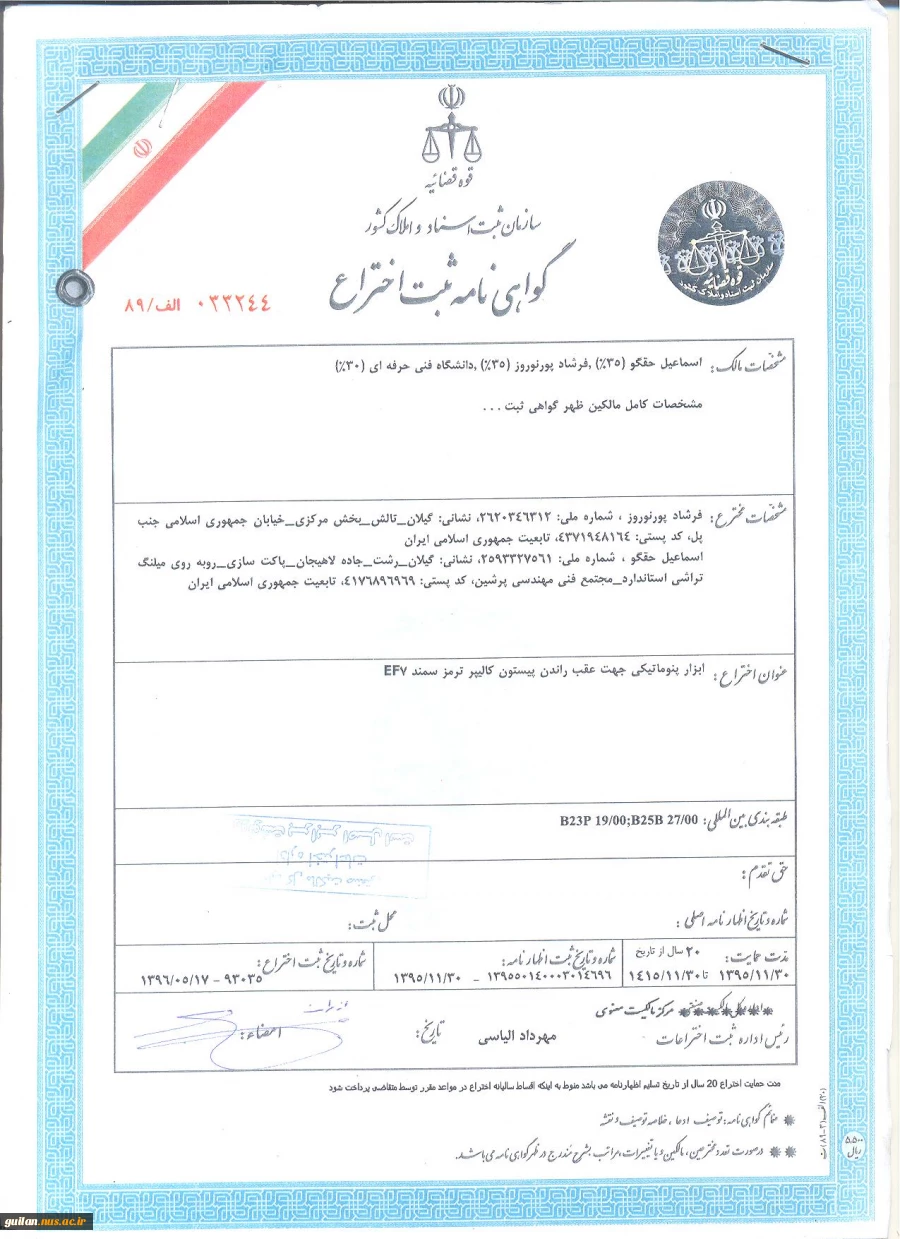 قوه قضائیه
سازمان ثبت اسناد و املاک کشور
گواهی نامه ثبت اختراع
۰۳۳۲۴۴ الف/۸۹
قوه قضائیه
سازمان ثبت اسناد و املاک کشور
مشخصات مالک: اسماعیل حقگو (۳۵٪) ,فرشاد پورنوروز (۳۵٪) ,دانشگاه فنی حرفه ای (۳۰٪)
مشخصات کامل مالکین ظهر گواهی ثبت ...
مشخصات مخترع: فرشاد پورنوروز ، شماره ملی: ۲۶۲۰۳۴۶۳۱۲، نشانی: گیلان_تالش_بخش مرکزی_خیابان جمهوری اسلامی جنب
پل، کد پستی: ۴۳۷۱۹۴۸۱۶۴، تابعیت جمهوری اسلامی ایران
اسماعیل حقگو ، شماره ملی: ۲۵۹۳۳۲۷۵۶۱، نشانی: گیلان_رشت_جاده لاهیجان_پاکت سازی_روبه روی میلنگ
تراشی استاندارد_مجتمع فنی مهندسی پرشین، کد پستی: ۴۱۷۶۸۹۶۹۶۹، تابعیت جمهوری اسلامی ایران
عنوان اختراع: ابزار پنوماتیکی جهت عقب راندن پیستون کالیپر ترمز سمند EF۷
طبقه بندی بین المللی: B23P 19/00;B25B 27/00
حق تقدم:
شماره و تاریخ اظهار نامه اصلی: محل ثبت:
مدت حمایت: ۲۰ سال از تاریخ شماره و تاریخ ثبت اظهار نامه: شماره و تاریخ ثبت اختراع:
۱۳۹۵/۱۱/۳۰ تا ۱۴۱۵/۱۱/۳۰ ۱۳۹۵۵۰۱۴۰۰۰۳۰۱۴۶۹۶ - ۱۳۹۵/۱۱/۳۰ ۹۳۰۳۵ - ۱۳۹۶/۰۵/۱۷
مرکز مالکیت معنوی
رئیس اداره ثبت اختراعات مهرداد الیاسی تاریخ: امضاء:
مدت حمایت اختراع 20 سال از تاریخ تسلیم اظهارنامه می باشد منوط به اینکه اقساط سالیانه اختراع در مواعد مقرر توسط متقاضی پرداخت شود
* ضمائم گواهی نامه: توصیف، ادعا، خلاصه توصیف و نقشه
** در صورت تعدد مخترعین، مالکین و یا تغییرات، مراتب بشرح مندرج در ظهر گواهی نامه می باشد.
۵۵۰۰ ریال
guilan.nus.ac.ir